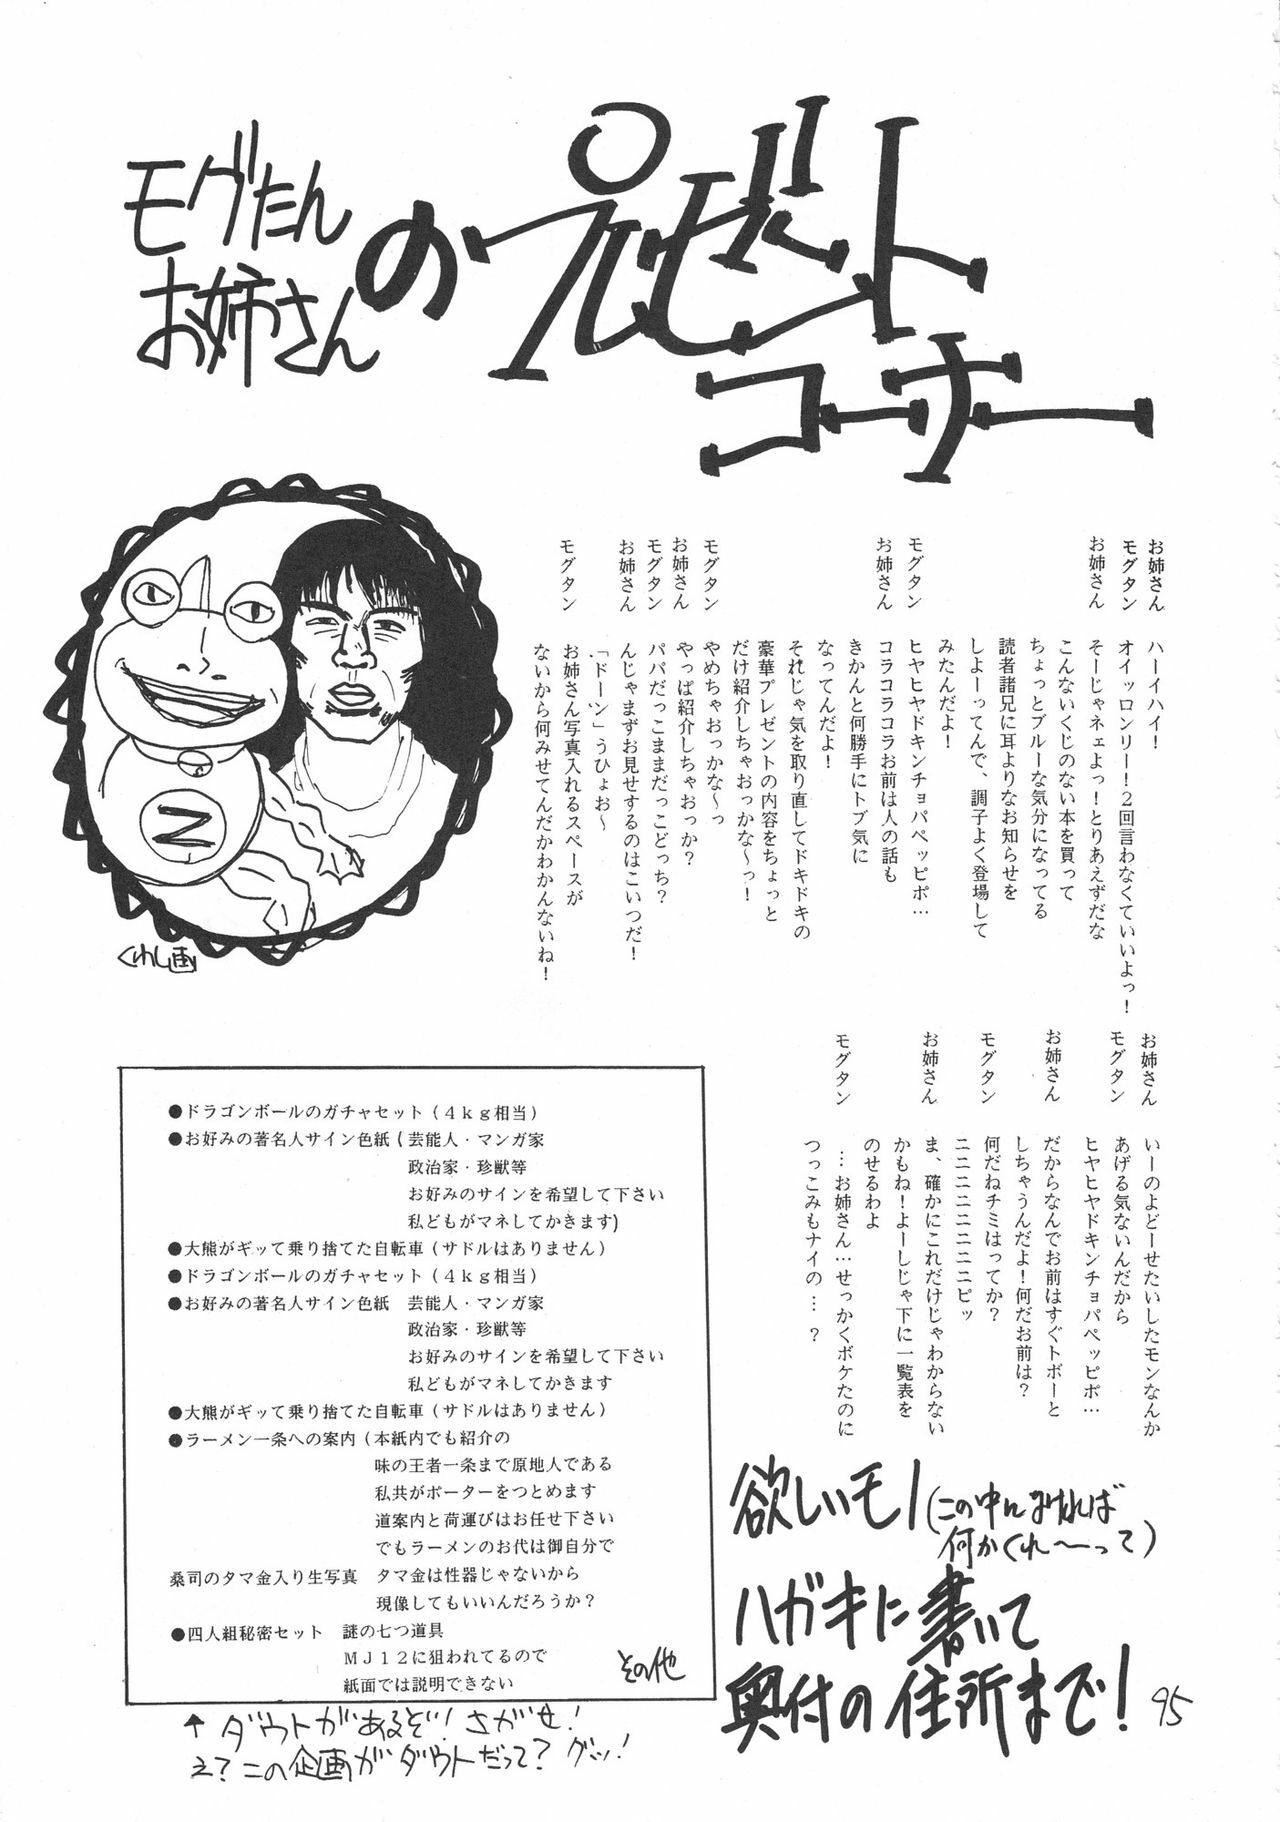 モグたん
お姉さん
の
プレゼント
コーナー
お姉さん　ハーイハイ！
モグタン　オイッロンリー！２回言わなくていいよっ！
お姉さん　そーじゃネェよっ！とりあえずだな
こんないくじのない本を買って
ちょっとブルーな気分になってる
読者諸兄に耳よりなお知らせを
しよーってんで、調子よく登場して
みたんだよ！
モグタン　ヒヤヒヤドキンチョパペッピポ…
お姉さん　コラコラコラお前は人の話も
きかんと何勝手にトブ気に
なってんだよ！
それじゃ気を取り直してドキドキの
豪華プレゼントの内容をちょっと
だけ紹介しちゃおっかな〜っ！
モグタン　やめちゃおっかな〜っ
お姉さん　やっぱ紹介しちゃおっか？
モグタン　パパだっこママだっこどっち？
お姉さん　んじゃまずお見せするのはこいつだ！
「ドーン」うひょお〜
モグタン　お姉さん写真入れるスペースが
ないから何みせてんだかわかんないね！
お姉さん　いーのよどーせたいしたモンなんか
あげる気ないんだから
モグタン　ヒヤヒヤドキンチョパペッピポ…
お姉さん　だからなんでお前はすぐトボーと
しちゃうんだよ！何だお前は？
モグタン　何だねチミはってか？
ニニニニニニニピッ
お姉さん　ま、確かにこれだけじゃわからない
かもね！よーしじゃ下に一覧表を
のせるわよ
モグタン　…お姉さん…せっかくボケたのに
つっこみもナイの…？
くわし画
●ドラゴンボールのガチャセット（４ｋｇ相当）
●お好みの著名人サイン色紙（芸能人・マンガ家
政治家・珍獣等
お好みのサインを希望して下さい
私どもがマネしてかきます）
●大熊がギッて乗り捨てた自転車（サドルはありません）
●ドラゴンボールのガチャセット（４ｋｇ相当）
●お好みの著名人サイン色紙　芸能人・マンガ家
政治家・珍獣等
お好みのサインを希望して下さい
私どもがマネしてかきます
●大熊がギッて乗り捨てた自転車（サドルはありません）
●ラーメン一条への案内（本紙内でも紹介の
味の王者一条まで原地人である
私共がポーターをつとめます
道案内と荷運びはお任せ下さい
でもラーメンのお代は御自分で
桑司のタマ金入り生写真　タマ金は性器じゃないから
現像してもいいんだろうか？
●四人組秘密セット　謎の七つ道具
ＭＪ１２に狙われてるので
紙面では説明できない
その他
↑ダウトがあるぞ！さがせ！
え？この企画がダウトだって？グッ！
欲しいモノ（この中になければ
何かくれ〜って）
ハガキに書いて
奥付の住所まで！
95